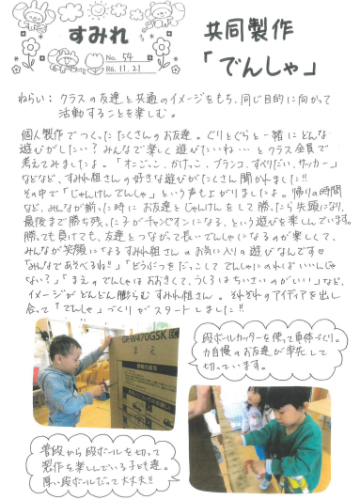 すみれ
No. 54
R6.11.21
共同製作
「でんしゃ」
ねらい：クラスの友達と共通のイメージをもち、同じ目的に向かって
活動することを楽しむ。
個人製作でつくったたくさんのお友達。ぐりとぐらと一緒にどんな
遊びがしたい？みんなで楽しく遊びたいね…とクラス全員で
考えてみましたよ。「すごろこ、かけっこ、ブランコ、すべりだい、サッカー」
などなど、すみれ組さんの好きな遊びがたくさん聞かれました!!
その中で「じゃんけんでんしゃ」という声も上がりましたよ。帰りの時間
など、みんなが揃った時にお友達とじゃんけんをして勝ったら先頭になり、
最後まで勝ち残った子がチャンピオンになる、という遊びを楽しんでいます。
勝っても負けても、友達とつながって長いでんしゃになるのが楽しくて、
みんなが笑顔になるすみれ組さんのお気に入りの遊びなんです☺
「みんなであそべるね!!」「どうぶつをだっこしてでんしゃにのればいいんじゃ
ない？」「まえのでんしゃはおおきくて、うしろはちいさいのがいい！」など、
イメージがどんどん膨らむすみれ組さん。それぞれのアイディアを出し
合って「でんしゃ」づくりがスタートしました!!
GR-W470GSK
段ボールカッターを使って車体づくり。
力自慢のお友達が率先して
切っています。
普段から段ボールを切って
製作を楽しんでいる子ども達。
厚い段ボールだって大丈夫!!